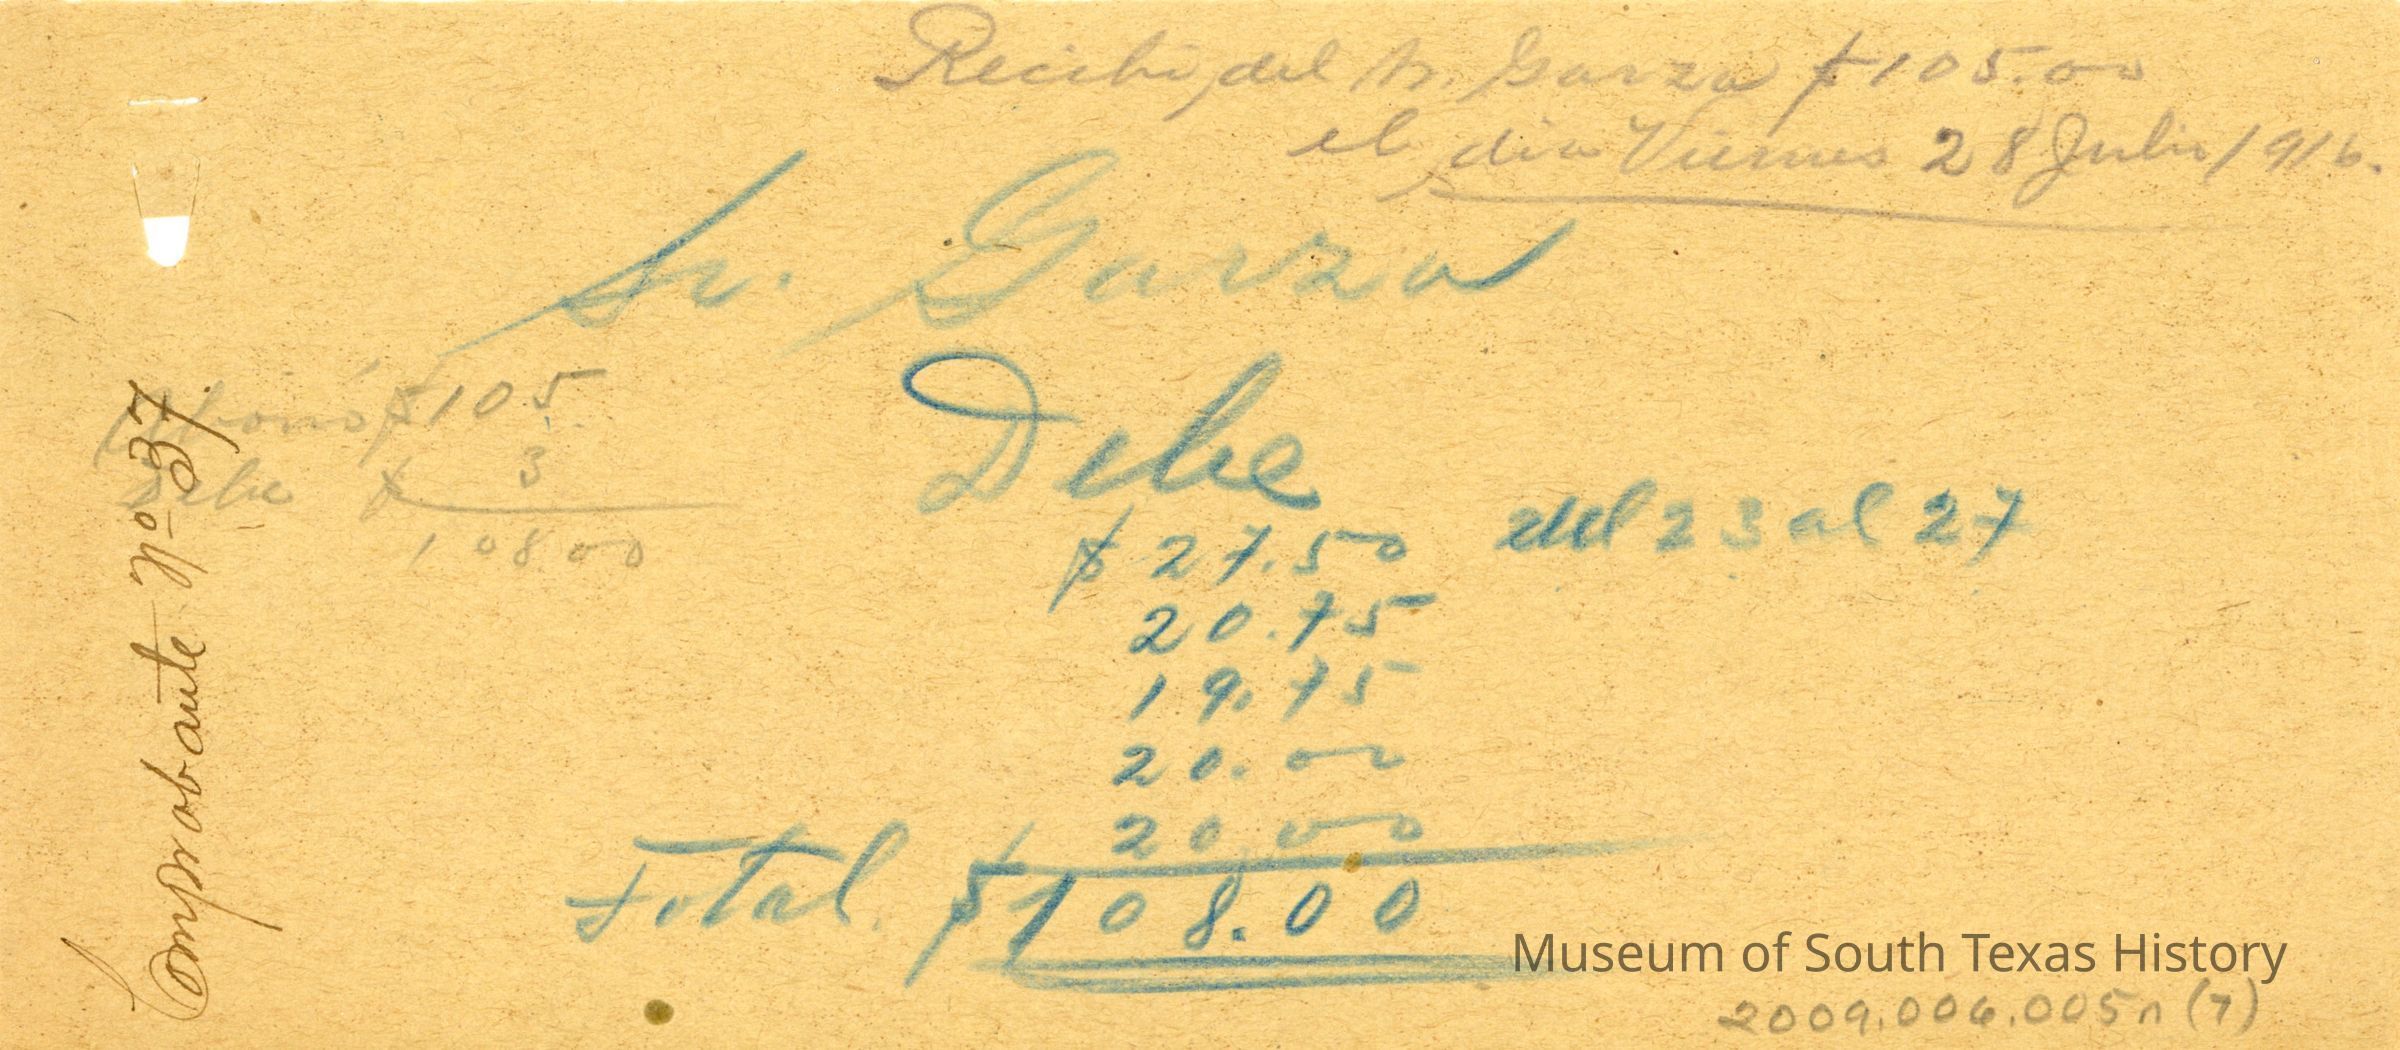 Recibi del Sr. Garza $105.00
el dia Viernes 28 Julio 1916.
Sr. Garza
Abonó $105
Debe $ 3
108.00
Debe
$27.50 del 23 al 27
20.75
19.75
20.00
20.00
Total. $108.00
Comprobante Nº 37
Museum of South Texas History
2009.006.005n (7)